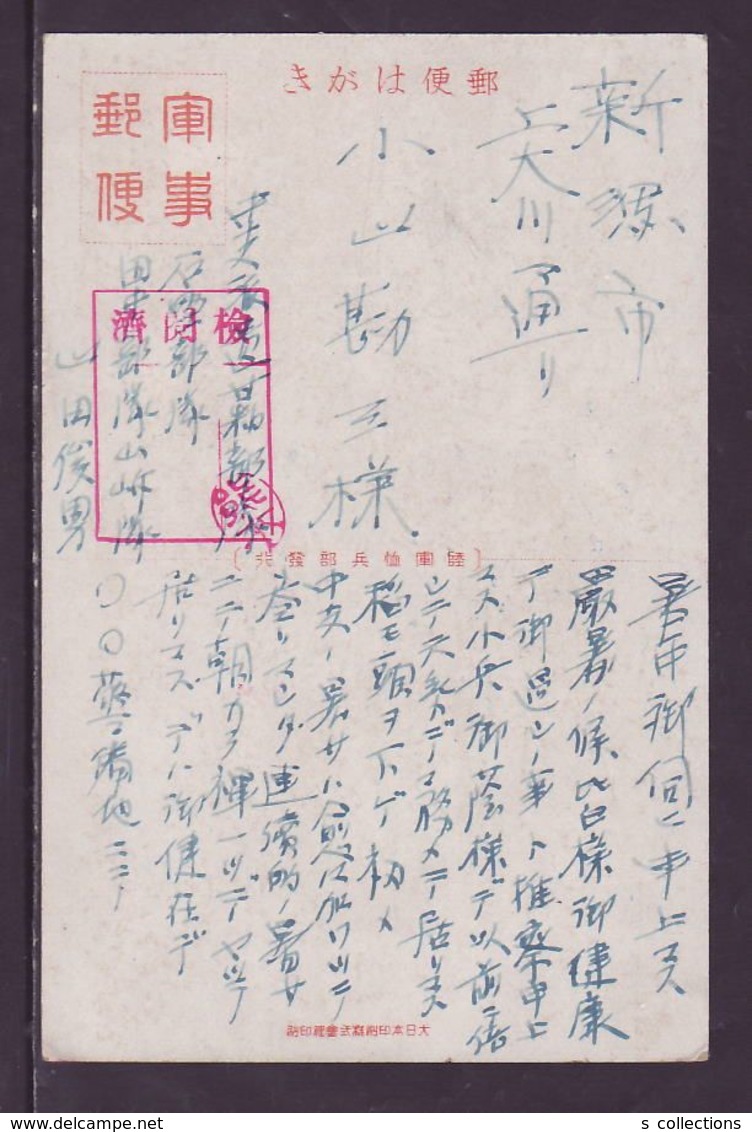 郵便はがき
軍事
郵便
新潟市
上大川前通り
小山勘三様
中支派遣
部隊
石野部隊
部隊山崎隊
山田俊男
検閲済
〔陸軍恤兵部發行〕
暑中御伺ヒ申上マス
嚴暑ノ候皆様御健康
デ御過シノ事ト推察申上
マス小兵御蔭様デ以前ニ倍
シテ元気デ軍務メテ居リマス
稲モ頭ヲ下ゲ初メ
中支ノ暑サハ愈々加ワツテ
參リマシタ連續的ノ暑サ
ニテ朝カラ褌一ツデヤツテ
居リマスデハ御健在デ
〇〇警備地ニテ
大日本印刷株式會社印刷
s collections